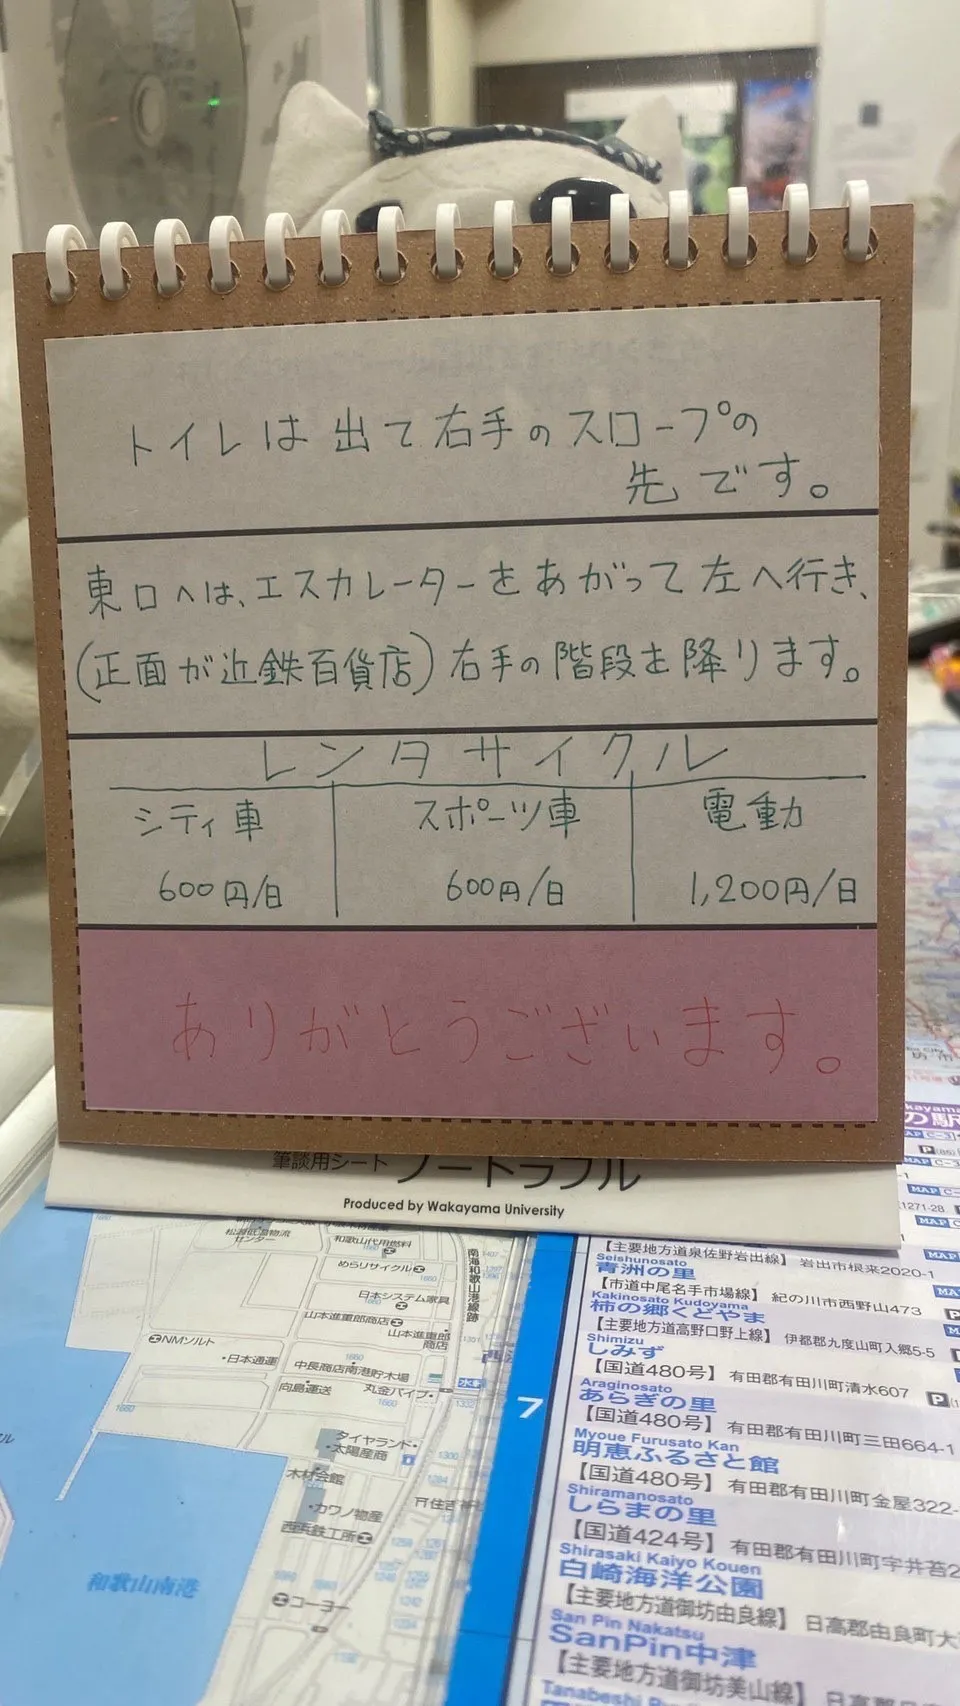 トイレは出て右手のスロープの
先です。
東口へは、エスカレーターをあがって左へ行き、
(正面が近鉄百貨店)右手の階段を降ります。
レンタサイクル
シティ車 スポーツ車 電動
600円/日 600円/日 1,200円/日
ありがとうございます。
筆談用シート ノートラブル
Produced by Wakayama University
和歌山代用燃料
めらりサイクル
日本システム家具
山本進重郎商店
山本進重郎
商店
NMソルト
・日本通運
中長商店南港貯木場
向島運送
丸金パイプ・
ダイヤランド・
・太陽産商
木材会館
・カワノ物産
西浜鉄工所
コーヨー
和歌山南港
南海和歌山港線跡
7
の駅
【主要地方道泉佐野岩出線】 岩出市根来2020-1
Seishunosato
青洲の里
【市道中尾名手市場線】 紀の川市西野山473
Kakinosato Kudoyama
柿の郷くどやま
【主要地方道高野口野上線】 伊都郡九度山町入郷5-5
Shimizu
しみず
【国道480号】 有田郡有田川町清水607
Araginosato
あらぎの里
【国道480号】 有田郡有田川町三田664-1
Myoue Furusato Kan
明恵ふるさと館
【国道480号】 有田郡有田川町金屋322-
Shiramanosato
しらまの里
【国道424号】 有田郡有田川町宇井苔2
Shirasaki Kaiyo Kouen
白崎海洋公園
【主要地方道御坊由良線】 日高郡由良町大
San Pin Nakatsu
SanPin中津
【主要地方道御坊美山線】 日高郡日高川町